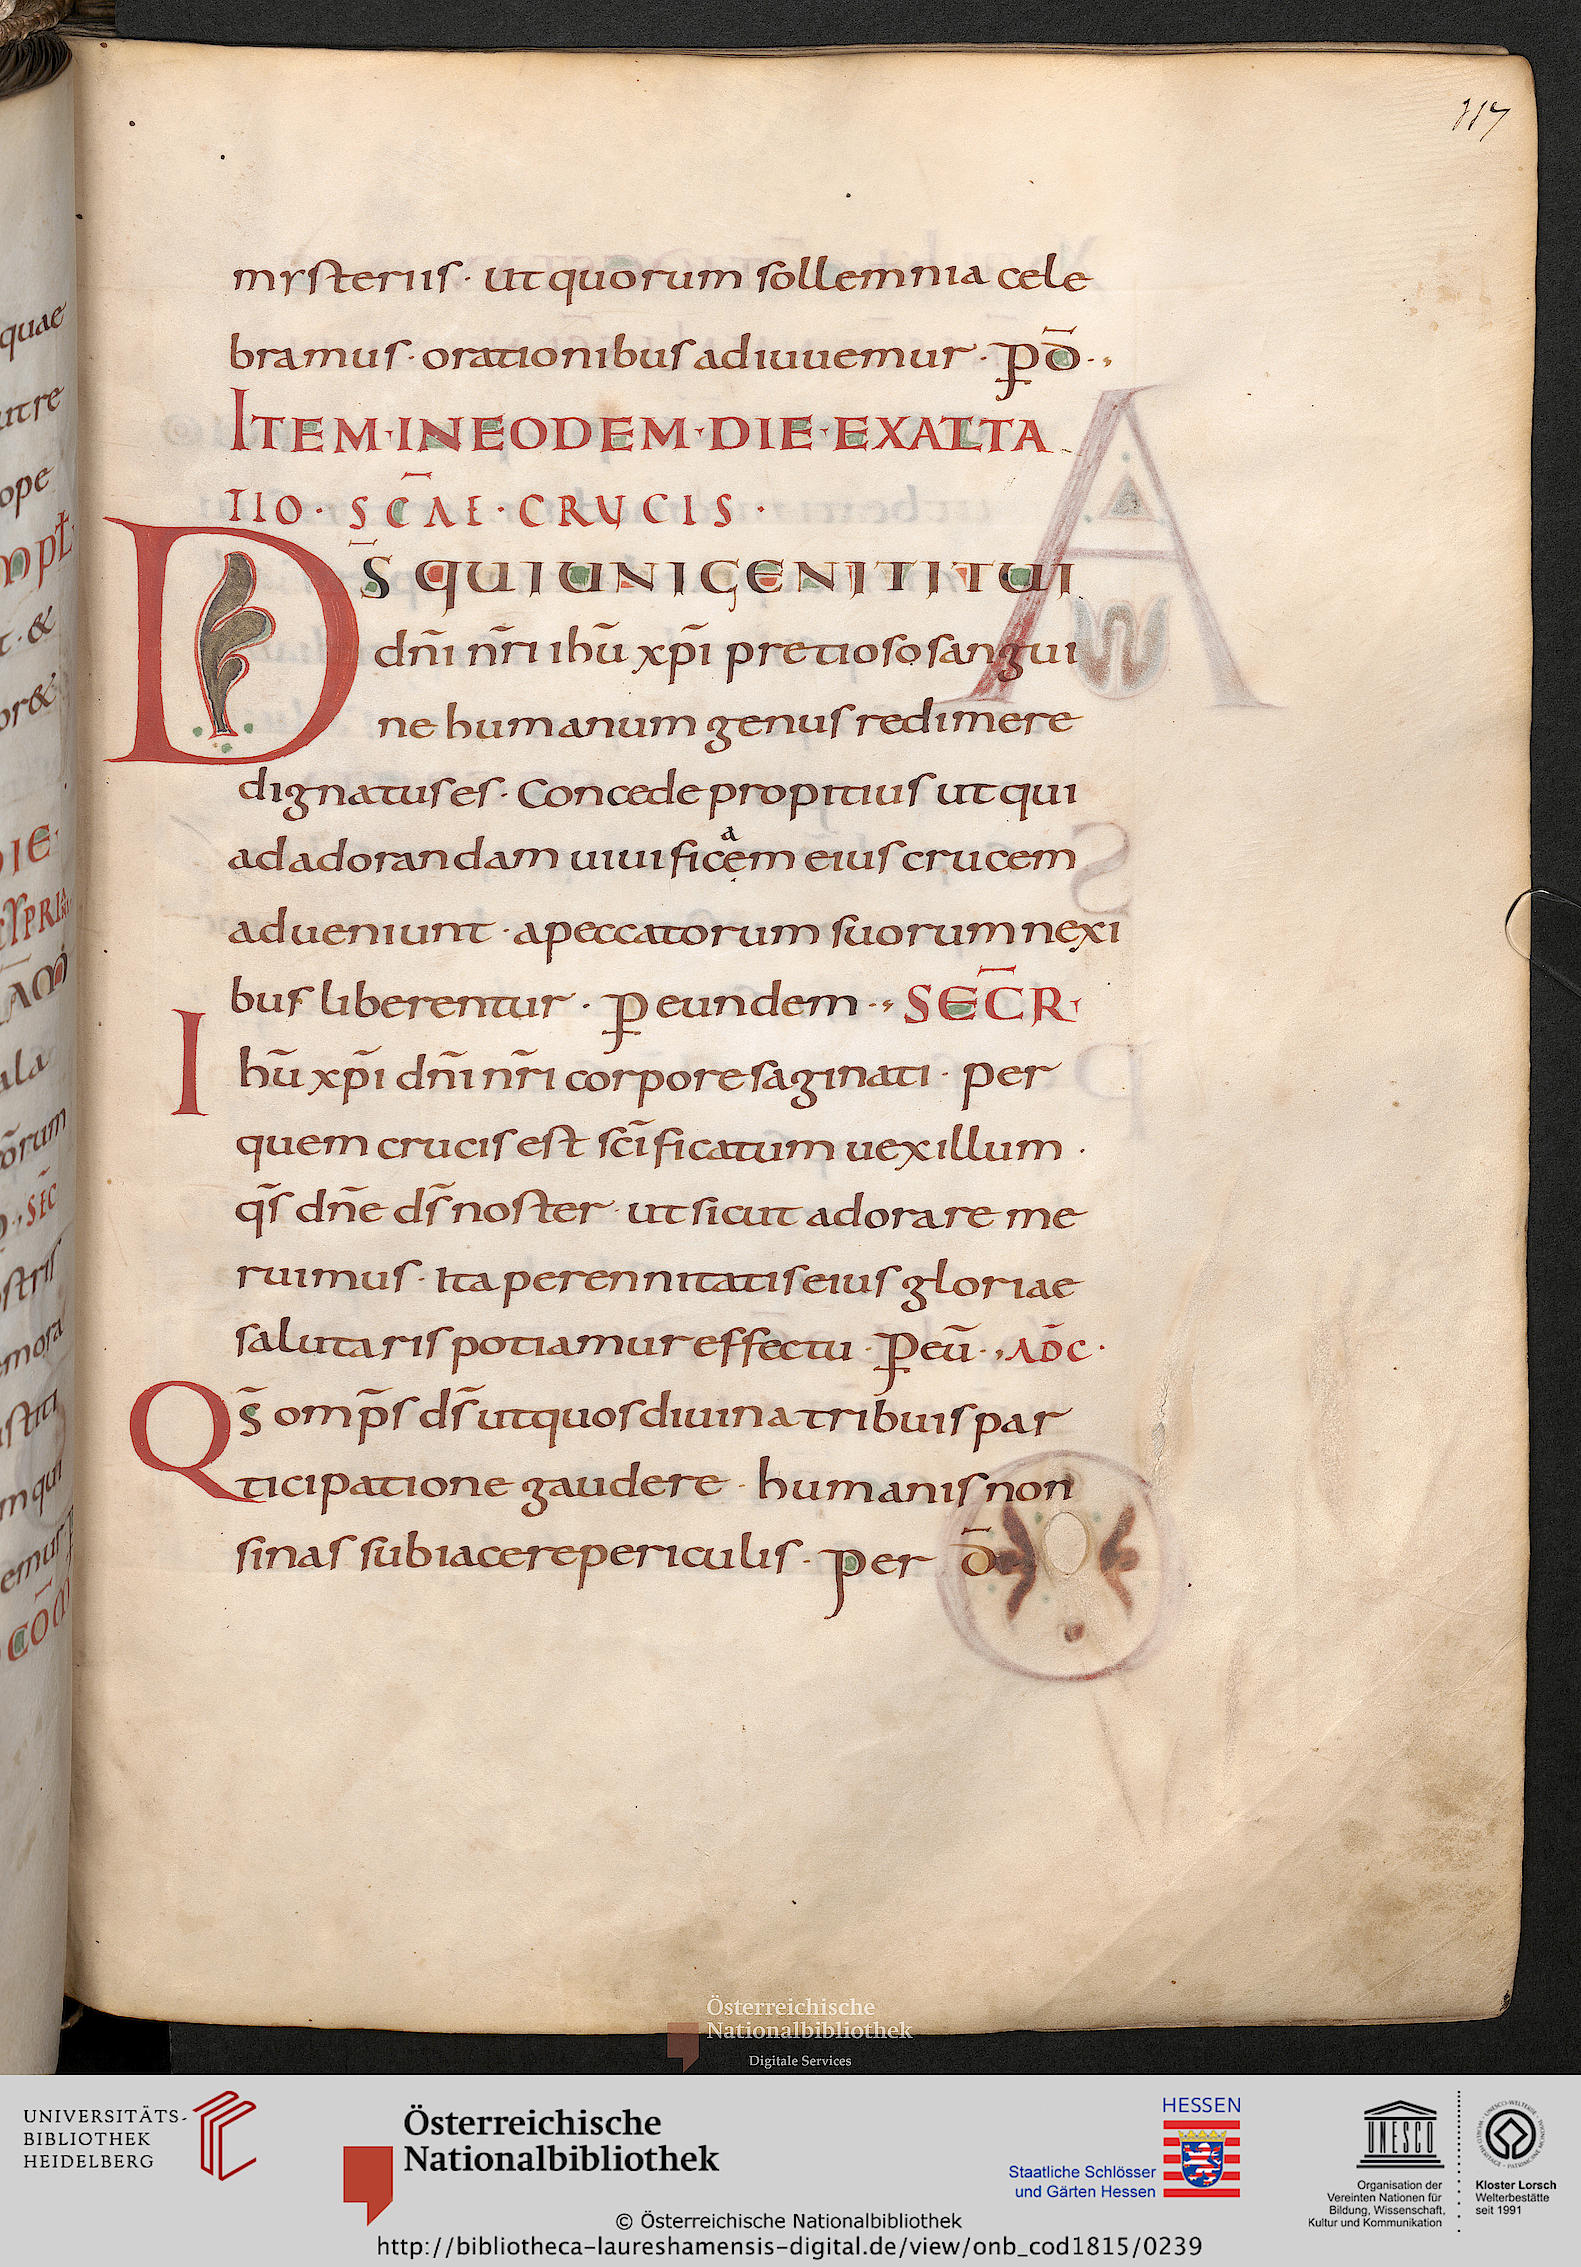 117
mysteriis · ut quorum sollemnia cele
bramus · orationibus adiuuemur · p̄ d̄ ·,
ITEM · IN EODEM · DIE · EXALTA
TIO · SC̄AE · CRUCIS ·
DS̄ QUI UNIGENITI TUI
dn̄i nr̄i ihū xp̄i pretioso sangui
ne humanum genus redimere
dignatus es · Concede propitius ut qui
ad adorandam uiuificem eius crucem
a
adueniunt · a peccatorum suorum nexi
bus liberentur · p̄ eundem ·, SECR̄ ·
Ihū xp̄i dn̄i nr̄i corpore saginati · per
quem crucis est sc̄ificatum uexillum ·
qs̄ dn̄e ds̄ noster · ut sicut adorare me
ruimus · ita perennitatis eius gloriae
salutaris potiamur effectu · p̄ eū ·, AD̄C ·
Qs̄ omp̄s ds̄ ut quos diuina tribuis par
ticipatione gaudere · humanis non
sinas subiacere periculis · per d̄
quae
utre
ope
mpt
t · &
or&
DIE ·
CYPRIA
ala
ōrum
SEC̄
ostris
emora
ustiti
m qui
emur p
COM̄
Österreichische
Nationalbibliothek
Digitale Services
UNIVERSITÄTS-
BIBLIOTHEK
HEIDELBERG
Österreichische
Nationalbibliothek
HESSEN
Staatliche Schlösser
und Gärten Hessen
UNESCO
Organisation der
Vereinten Nationen für
Bildung, Wissenschaft,
Kultur und Kommunikation
Kloster Lorsch
Welterbestätte
seit 1991
© Österreichische Nationalbibliothek
http://bibliotheca-laureshamensis-digital.de/view/onb_cod1815/0239